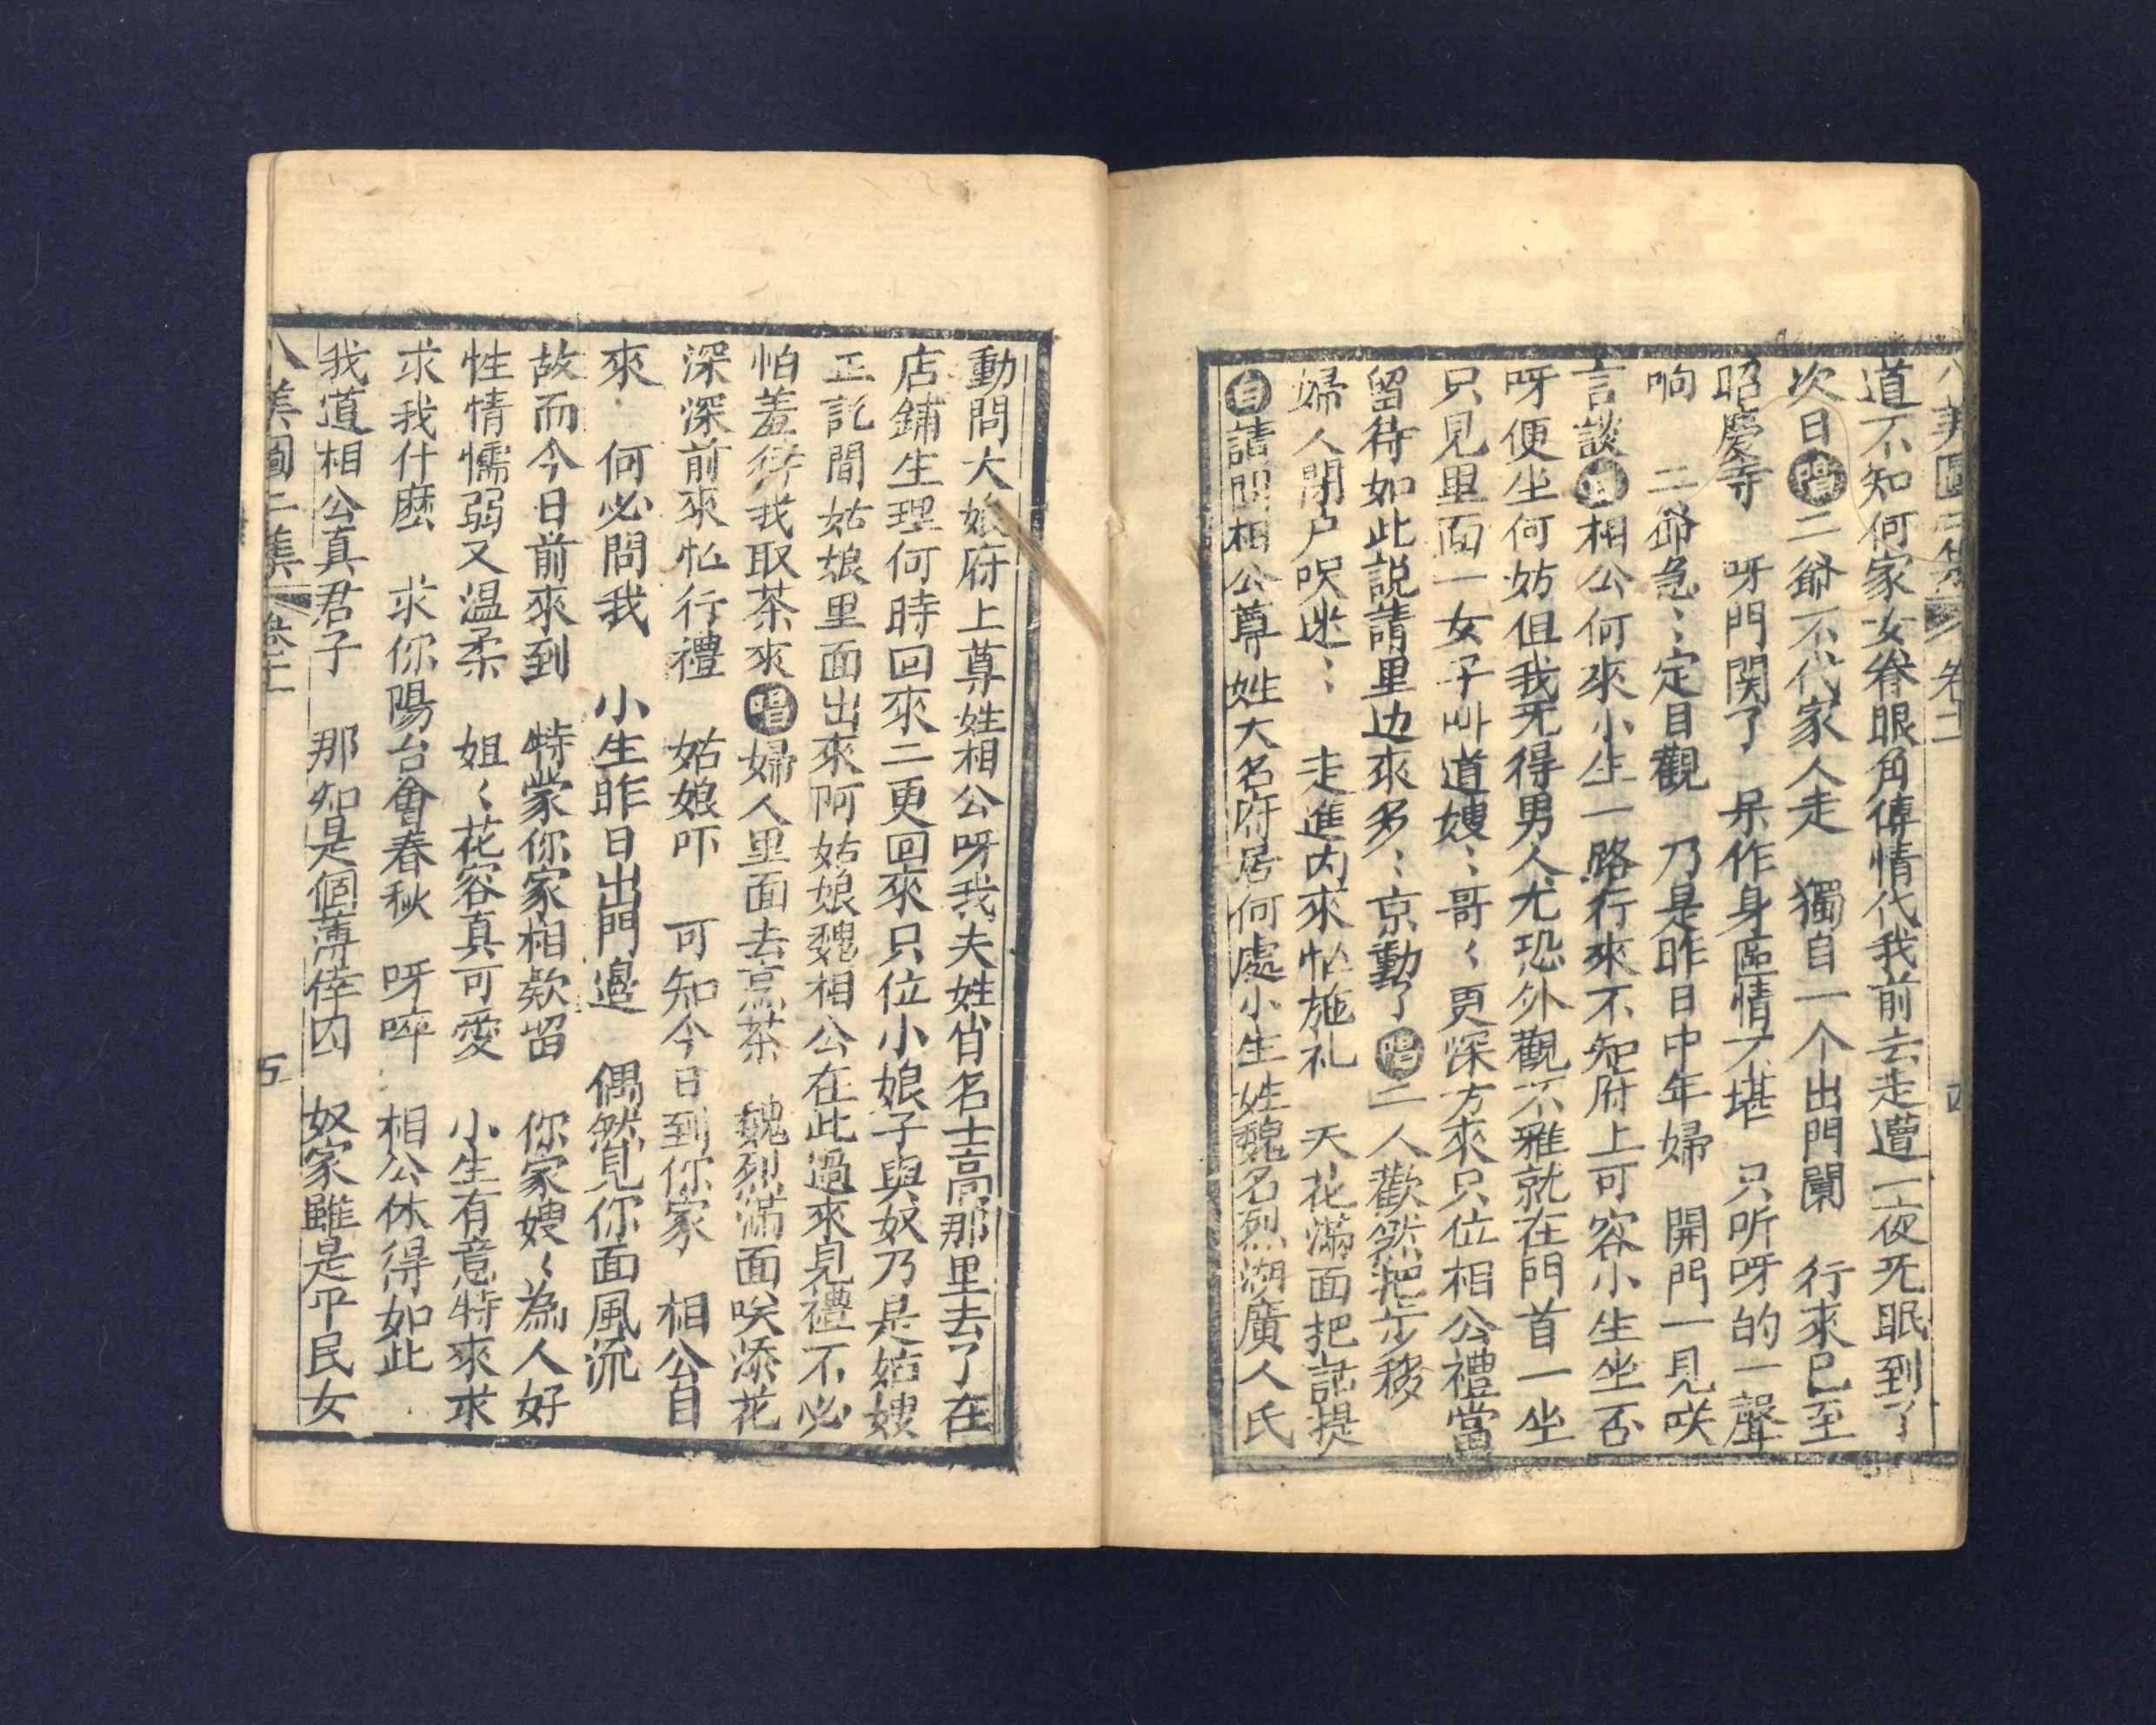 八美圖二集 卷二 四
道不知何家女眷眼角傳情代我前去走遭一夜旡眠到了
次日唱二爺不代家人走 獨自一个出門闌 行來已至
昭慶寺 呀門関了 呆作身區情不堪 只听呀的一聲
响 二爺急〻定目觀 乃是昨日中年婦 開門一見咲
言談白相公何來小生一路行來不知府上可容小生坐否
呀便坐何妨但我旡得男人尤恐外觀不雅就在門首一坐
只見里面一女子叫道嫂〻哥〻更深方來只位相公禮當
留待如此説請里边來多〻京動了唱二人歡然把步移
婦人閉户咲迷〻 走進内來忙施礼 天花滿面把話提
白請問相公尊姓大名府居何處小生姓魏名烈湖廣人氏
動問大娘府上尊姓相公呀我夫姓肖名士高那里去了在
店鋪生理何時回來二更回來只位小娘子與奴乃是姑嫂
正説間姑娘里面出來阿姑娘魏相公在此過來見禮不必
怕羞待我取茶來唱婦人里面去烹茶 魏烈滿面咲添花
深深前來忙行禮 姑娘吓 可知今日到你家 相公自
來 何必問我 小生昨日出門邊 偶然見你面風流
故而今日前來到 特蒙你家相欵留 你家嫂〻為人好
性情懦弱又温柔 姐〻花容真可愛 小生有意特來求
求我什麽 求你陽台會春秋 呀啐 相公休得如此
我道相公真君子 那知是個薄倖囚 奴家雖是平民女
八美圖二集 卷二 五